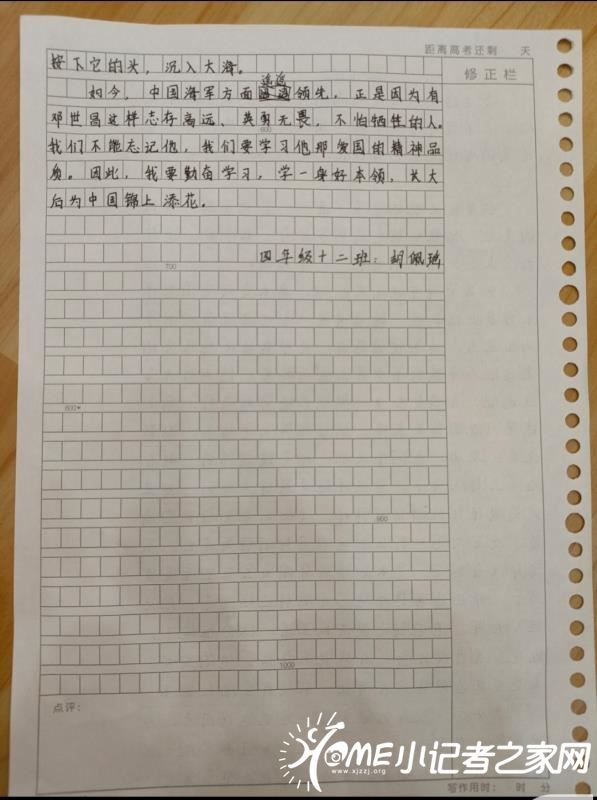 距离高考还剩 天
修正栏
按下它的头，沉入大海。
遥遥
如今，中国海军方面领先，正是因为有
邓世昌这样志存高远、英勇无畏，不怕牺牲的人。
600
我们不能忘记他，我们要学习他那爱国的精神品
质。因此，我要勤奋学习，学一身好本领，长大
后为中国锦上添花。
四年级十二班：胡佩瑶
700
800
900
1000
点评：
HOME小记者之家网
www.xjzzj.org
写作用时： 时 分